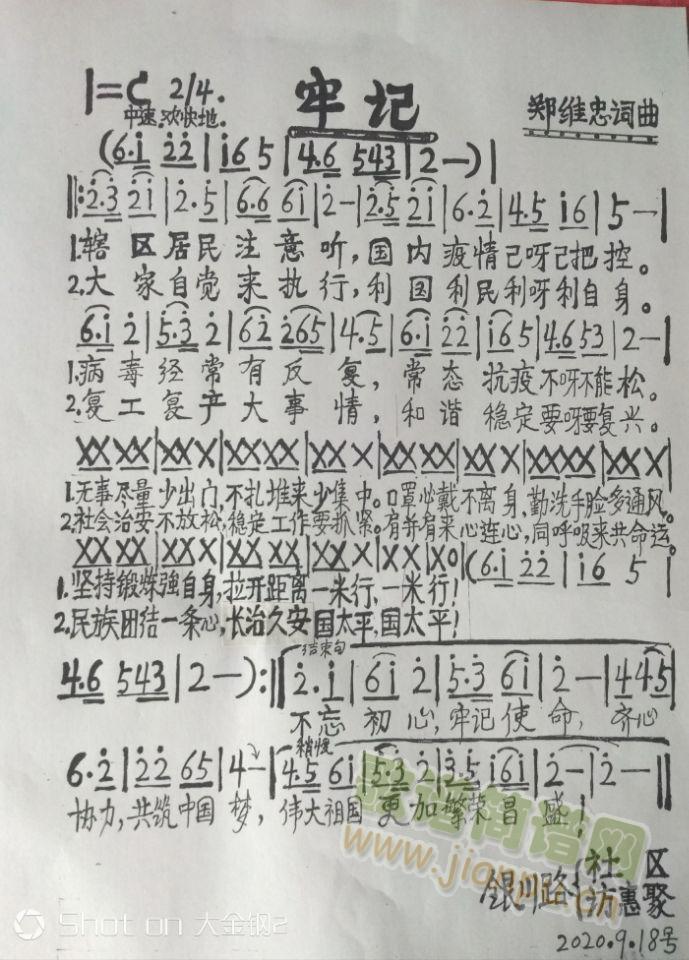 1=C 2/4. 牢记 郑维忠词曲
中速.欢快地.
(6.i 22|i65|4.6 543|2—)|
‖:2.3 21|2.5|6.6 6i|2—|2.5 21|6.2|4.5 i6|5—|
1.辖区居民注意听,国内疫情已呀已把控。
2.大家自觉来执行,利国利民利呀利自身。
6.i 2|5.3 2|62 265|4.5|6.i 22|i65|4.6 53|2—|
1.病毒经常有反复,常态抗疫不呀不能松。
2.复工复产大事情,和谐稳定要呀要复兴。
XX XX|XX X|XX XX|XX X|XX XX|XX X|XXXX|XX X|
1.无事尽量少出门,不扎堆来少集中。口罩必戴不离身,勤洗手脸多通风。
2.社会治安不放松,稳定工作要抓紧。肩并肩来心连心,同呼吸来共命运。
XX XX|XX X|XX XX|XX X|XX X|XX X0|(6.i 22|i6 5|
1.坚持锻炼強自身,拉开距离一米行,一米行!
2.民族团结一条心,长治久安国太平,国太平!
结束句
4.6 543|2—):‖2.i|6i 2|5.3 6i|2—|445|
不忘初心,牢记使命,齐心
稍慢
6.2|22 65|4—|4.5 6i|5.3 2|3.5 i6i|2—|2—‖
协力,共筑中国梦,伟大祖国更加繁荣昌盛!
www.jianpu.cn
银川路{社区
访惠聚
2020.9.18号
Shot on 大金钢2